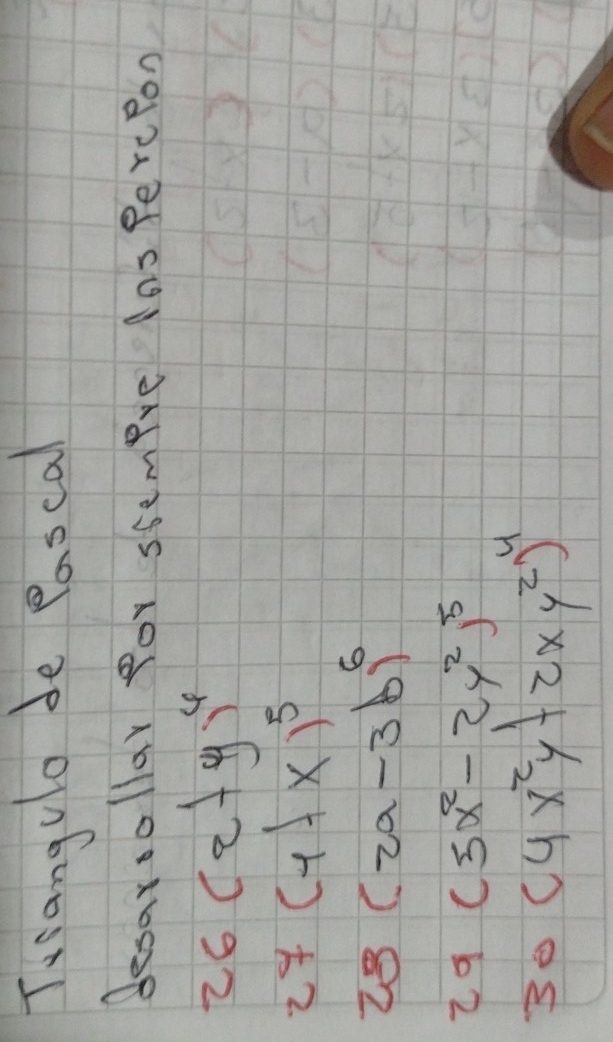 Triangulo de Pascal
Desarrollar Por siempre las Percpon
26 (2+y)⁴
27 (4+x)⁵
28 (2a-3b)⁶
29 (5x²-2y²)⁵
30 (4x²y+2xy²)⁴